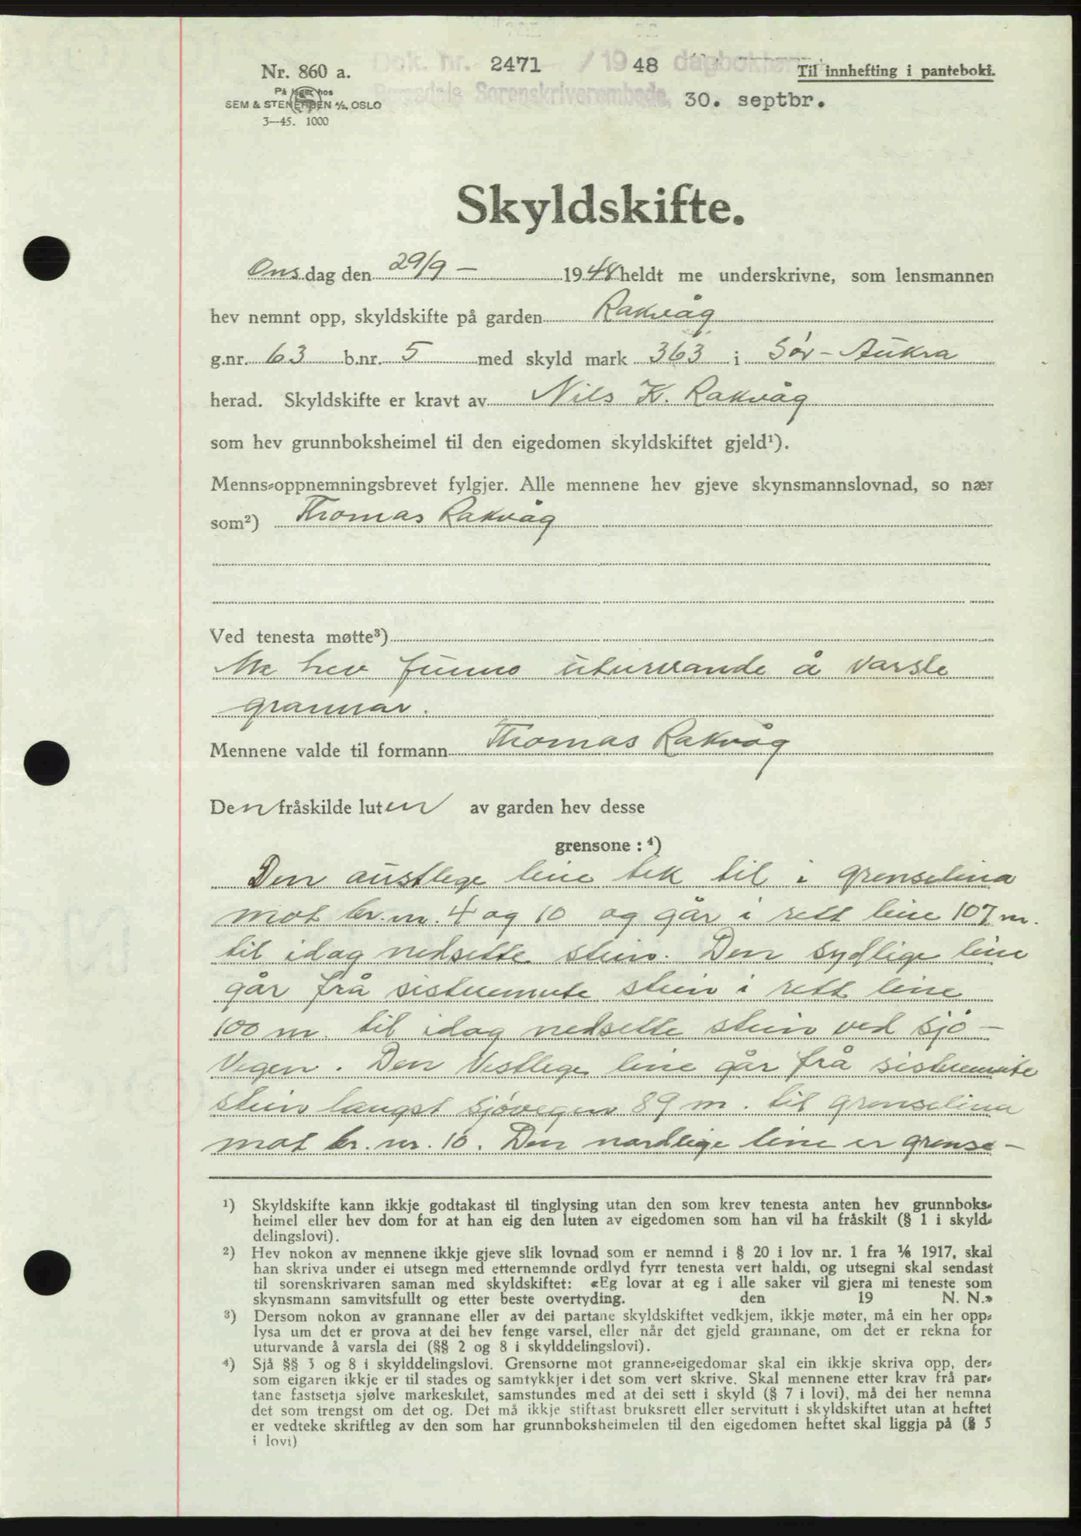 Nr. 860 a.
Dok. nr. 2471 / 1948 dagbokføring
Til innhefting i pantebok.
På lager hos
SEM & STENERSEN A/S, OSLO
3—45. 1000
Romsdals Sorenskriverembede, 30. septbr.
Skyldskifte.
Onsdag den 29/9 — 1948 heldt me underskrivne, som lensmannen
hev nemnt opp, skyldskifte på garden Rakvåg
g.nr. 63 b.nr. 5 med skyld mark 363 i Sør-Aukra
herad. Skyldskifte er kravt av Nils K. Rakvåg
som hev grunnboksheimel til den eigedomen skyldskiftet gjeld¹).
Menns-oppnemningsbrevet fylgjer. Alle mennene hev gjeve skynsmannslovnad, so nær
som²) Thomas Rakvåg
Ved tenesta møtte³)
Me hev funno uturvande å varsle
grannar.
Mennene valde til formann Thomas Rakvåg
Den fråskilde luten av garden hev desse
grensone : ⁴)
Den austlege line tek til i grenselina
mot br. nr. 4 og 10 og går i rett line 107 m.
til idag nedsette stein. Den sydlige line
går frå sistnemnte stein i rett line
100 m. til idag nedsette stein ved sjø-
vegen. Den vestlege line går frå sistnemnte
stein langst sjøvegen 89 m. til grenselina
mot br. nr. 10. Den nordlige line er grense-
¹) Skyldskifte kann ikkje godtakast til tinglysing utan den som krev tenesta anten hev grunnboks-
heimel eller hev dom for at han eig den luten av eigedomen som han vil ha fråskilt (§ 1 i skyld-
delingslovi).
²) Hev nokon av mennene ikkje gjeve slik lovnad som er nemnd i § 20 i lov nr. 1 fra 1/6 1917, skal
han skriva under ei utsegn med etternemnde ordlyd fyrr tenesta vert haldi, og utsegni skal sendast
til sorenskrivaren saman med skyldskiftet: «Eg lovar at eg i alle saker vil gjera mi teneste som
skynsmann samvitsfullt og etter beste overtyding. den 19 N. N.»
³) Dersom nokon av grannane eller av dei partane skyldskiftet vedkjem, ikkje møter, må ein her opp-
lysa um det er prova at dei hev fenge varsel, eller når det gjeld grannane, om det er rekna for
uturvande å varsla dei (§§ 2 og 8 i skylddelingslovi).
⁴) Sjå §§ 3 og 8 i skylddelingslovi. Grensorne mot granne-eigedomar skal ein ikkje skriva opp, der-
som eigaren ikkje er til stades og samtykkjer i det som vert skrive. Skal mennene etter krav frå par-
tane fastsetja sjølve markeskilet, samstundes med at dei sett i skyld (§ 7 i lovi), må dei her nemna
det som trengst om det og. Det må ikkje stiftast bruksrett eller servitutt i skyldskiftet utan at heftet
er vedteke skriftleg av den som har grunnboksheimelen til den eigedomen heftet skal liggja på (§ 5
i lovi)